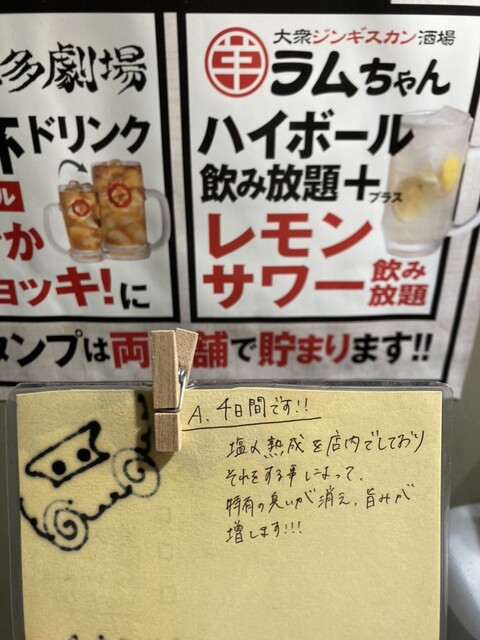 多劇場
杯ドリンク
ル
か
ョッキ!に
大衆ジンギスカン酒場
ラムちゃん
ハイボール
飲み放題+
プラス
レモン
サワー飲み
放題
タンプは両店舗で貯まります!!
A. 4日間です!!
塩〆熟成を店内でしており
それをする事によって、
特有の臭いが消え、旨みが
増します!!!